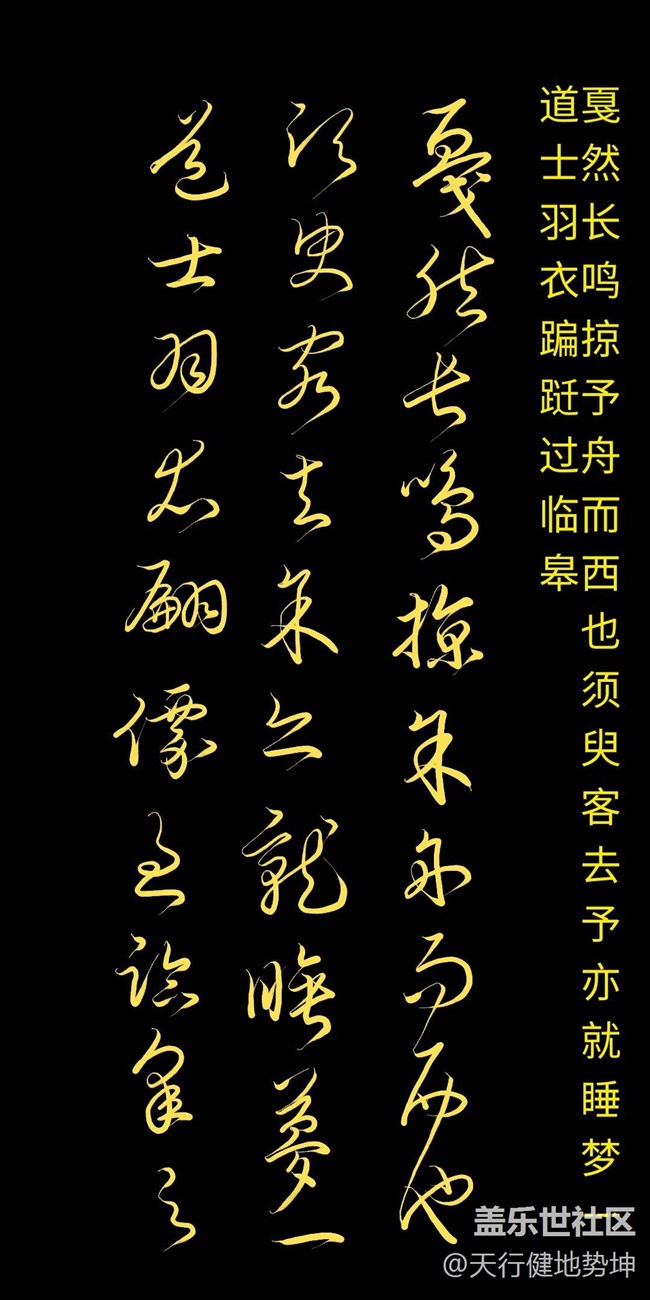 戛然长鸣掠予舟而西也须臾客去予亦就睡梦一
道士羽衣蹁跹过临皋
戛然長鳴掠予舟而西也
須臾客去予亦就睡夢一
道士羽衣翩僊過臨皋之
盖乐世社区
@天行健地势坤